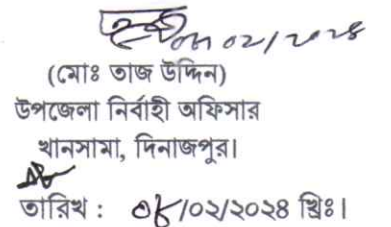 ০২/২০২৪
(মোঃ তাজ উদ্দিন)
উপজেলা নির্বাহী অফিসার
খানসামা, দিনাজপুর।
তারিখ : ০৮/০২/২০২৪ খ্রিঃ।